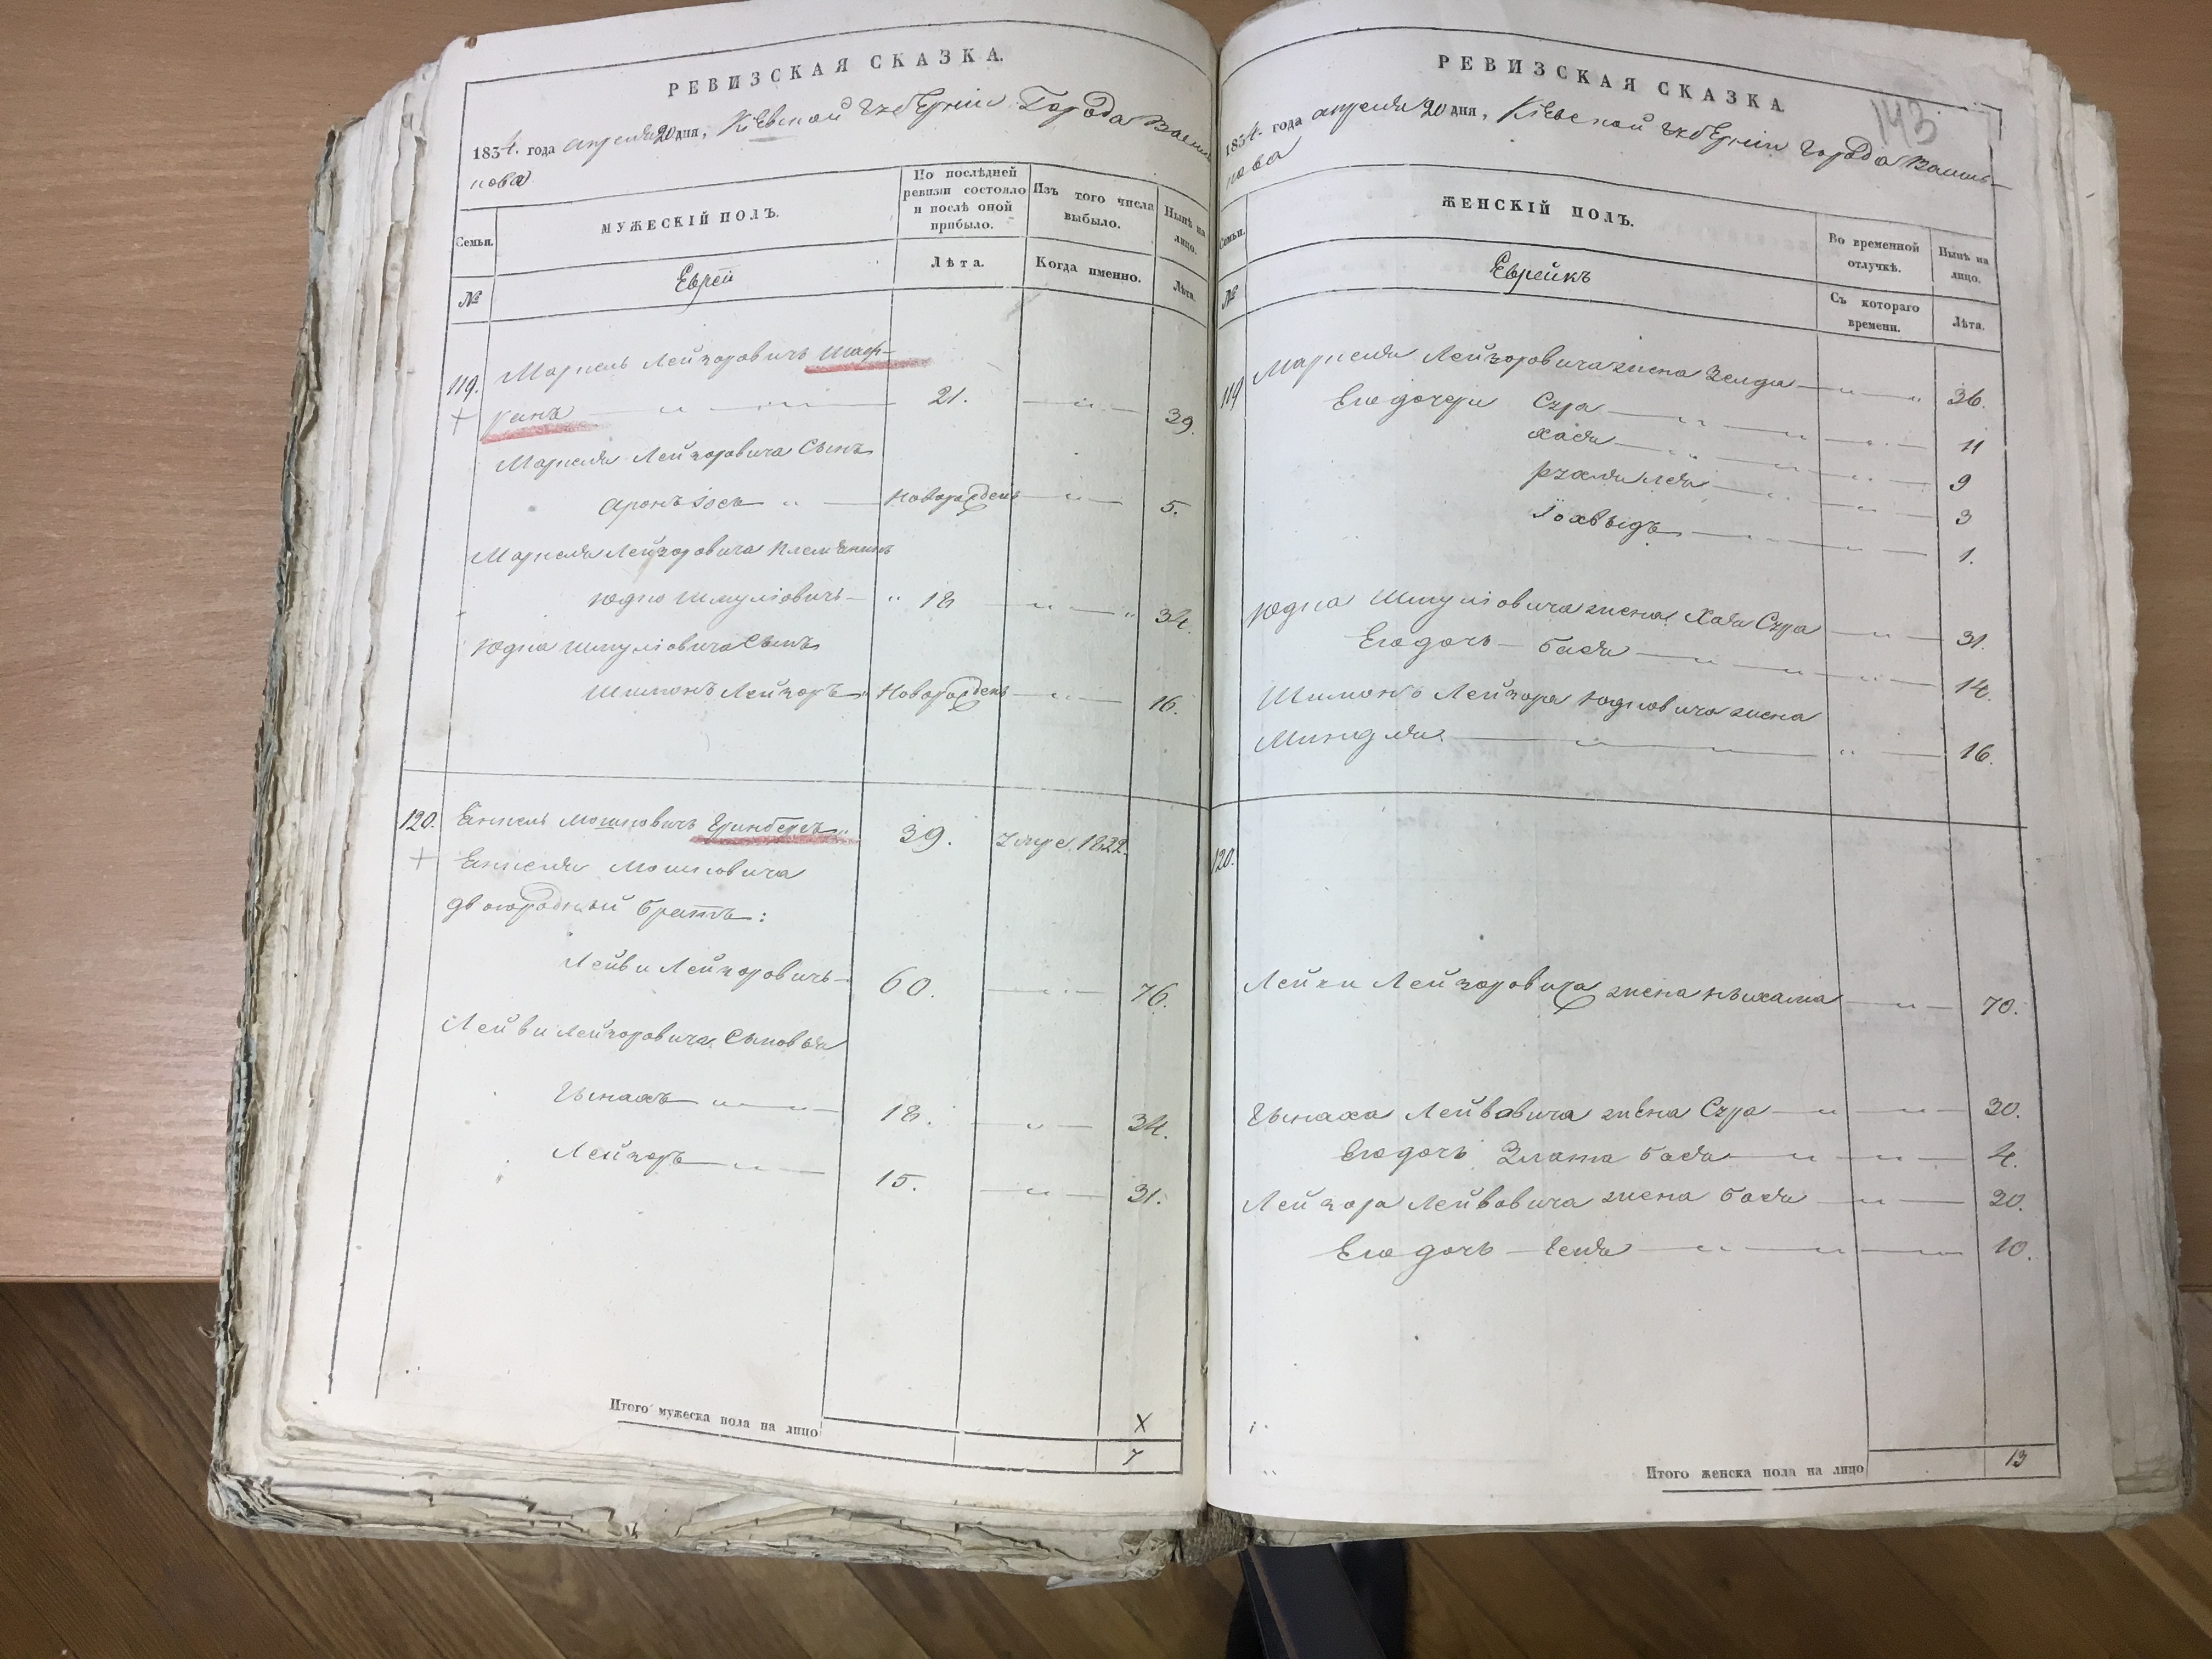 РЕВИЗСКАЯ СКАЗКА.
1834. года апреля 20 дня, Кіевской губерніи Города Василь
кова
Семьи.
МУЖЕСКІЙ ПОЛЪ.
По послѣдней ревизіи состояло и послѣ оной прибыло.
Изъ того числа выбыло.
Нынѣ на лицо.
№
Еврей
Лѣта.
Когда именно.
Лѣта.
119. Маркель Лейзоровичъ Шаф-
кинъ 21. 39.
Маркеля Лейзоровича Сынъ
Аронъ Іось Новорожденъ 5.
Маркеля Лейзоровича племянникъ
Юдко Шмуліовичъ 18 34.
Юдка Шмуліовича Сынъ
Шимонъ Лейзоръ Новорожденъ 16.
120. Енкель Мошковичъ Гринбергъ 39. 1822.
Енкеля Мошковича
двоюродный братъ:
Лейви Лейзоровичъ 60. 76.
Лейви Лейзоровича Сыновья
Гынахъ 18. 34.
Лейзоръ 15. 31.
Итого мужеска пола на лицо
X
7
РЕВИЗСКАЯ СКАЗКА.
143
1834. года апреля 20 дня, Кіевской губерніи города Василь-
кова
Семьи.
ЖЕНСКІЙ ПОЛЪ.
Во временной отлучкѣ.
Нынѣ на лицо.
№
Еврейкъ
Съ котораго времени.
Лѣта.
119 Маркеля Лейзоровича жена Зелда 36.
Его дочери Сура 11
Хася 9
Рухля Лея 3
Іохвыдъ 1.
Юдка Шмуліовича жена Хая Сура 31.
Его дочь — Бася 14.
Шимона Лейзора Юдковича жена
Миндля 16.
120.
Лейви Лейзоровича жена Нѣхама 70.
Гынаха Лейвовича жена Сура 30.
Его дочь Злата Бася 4.
Лейзора Лейвовича жена Бася 30.
Его дочь — 10.
Итого женска пола на лицо
13